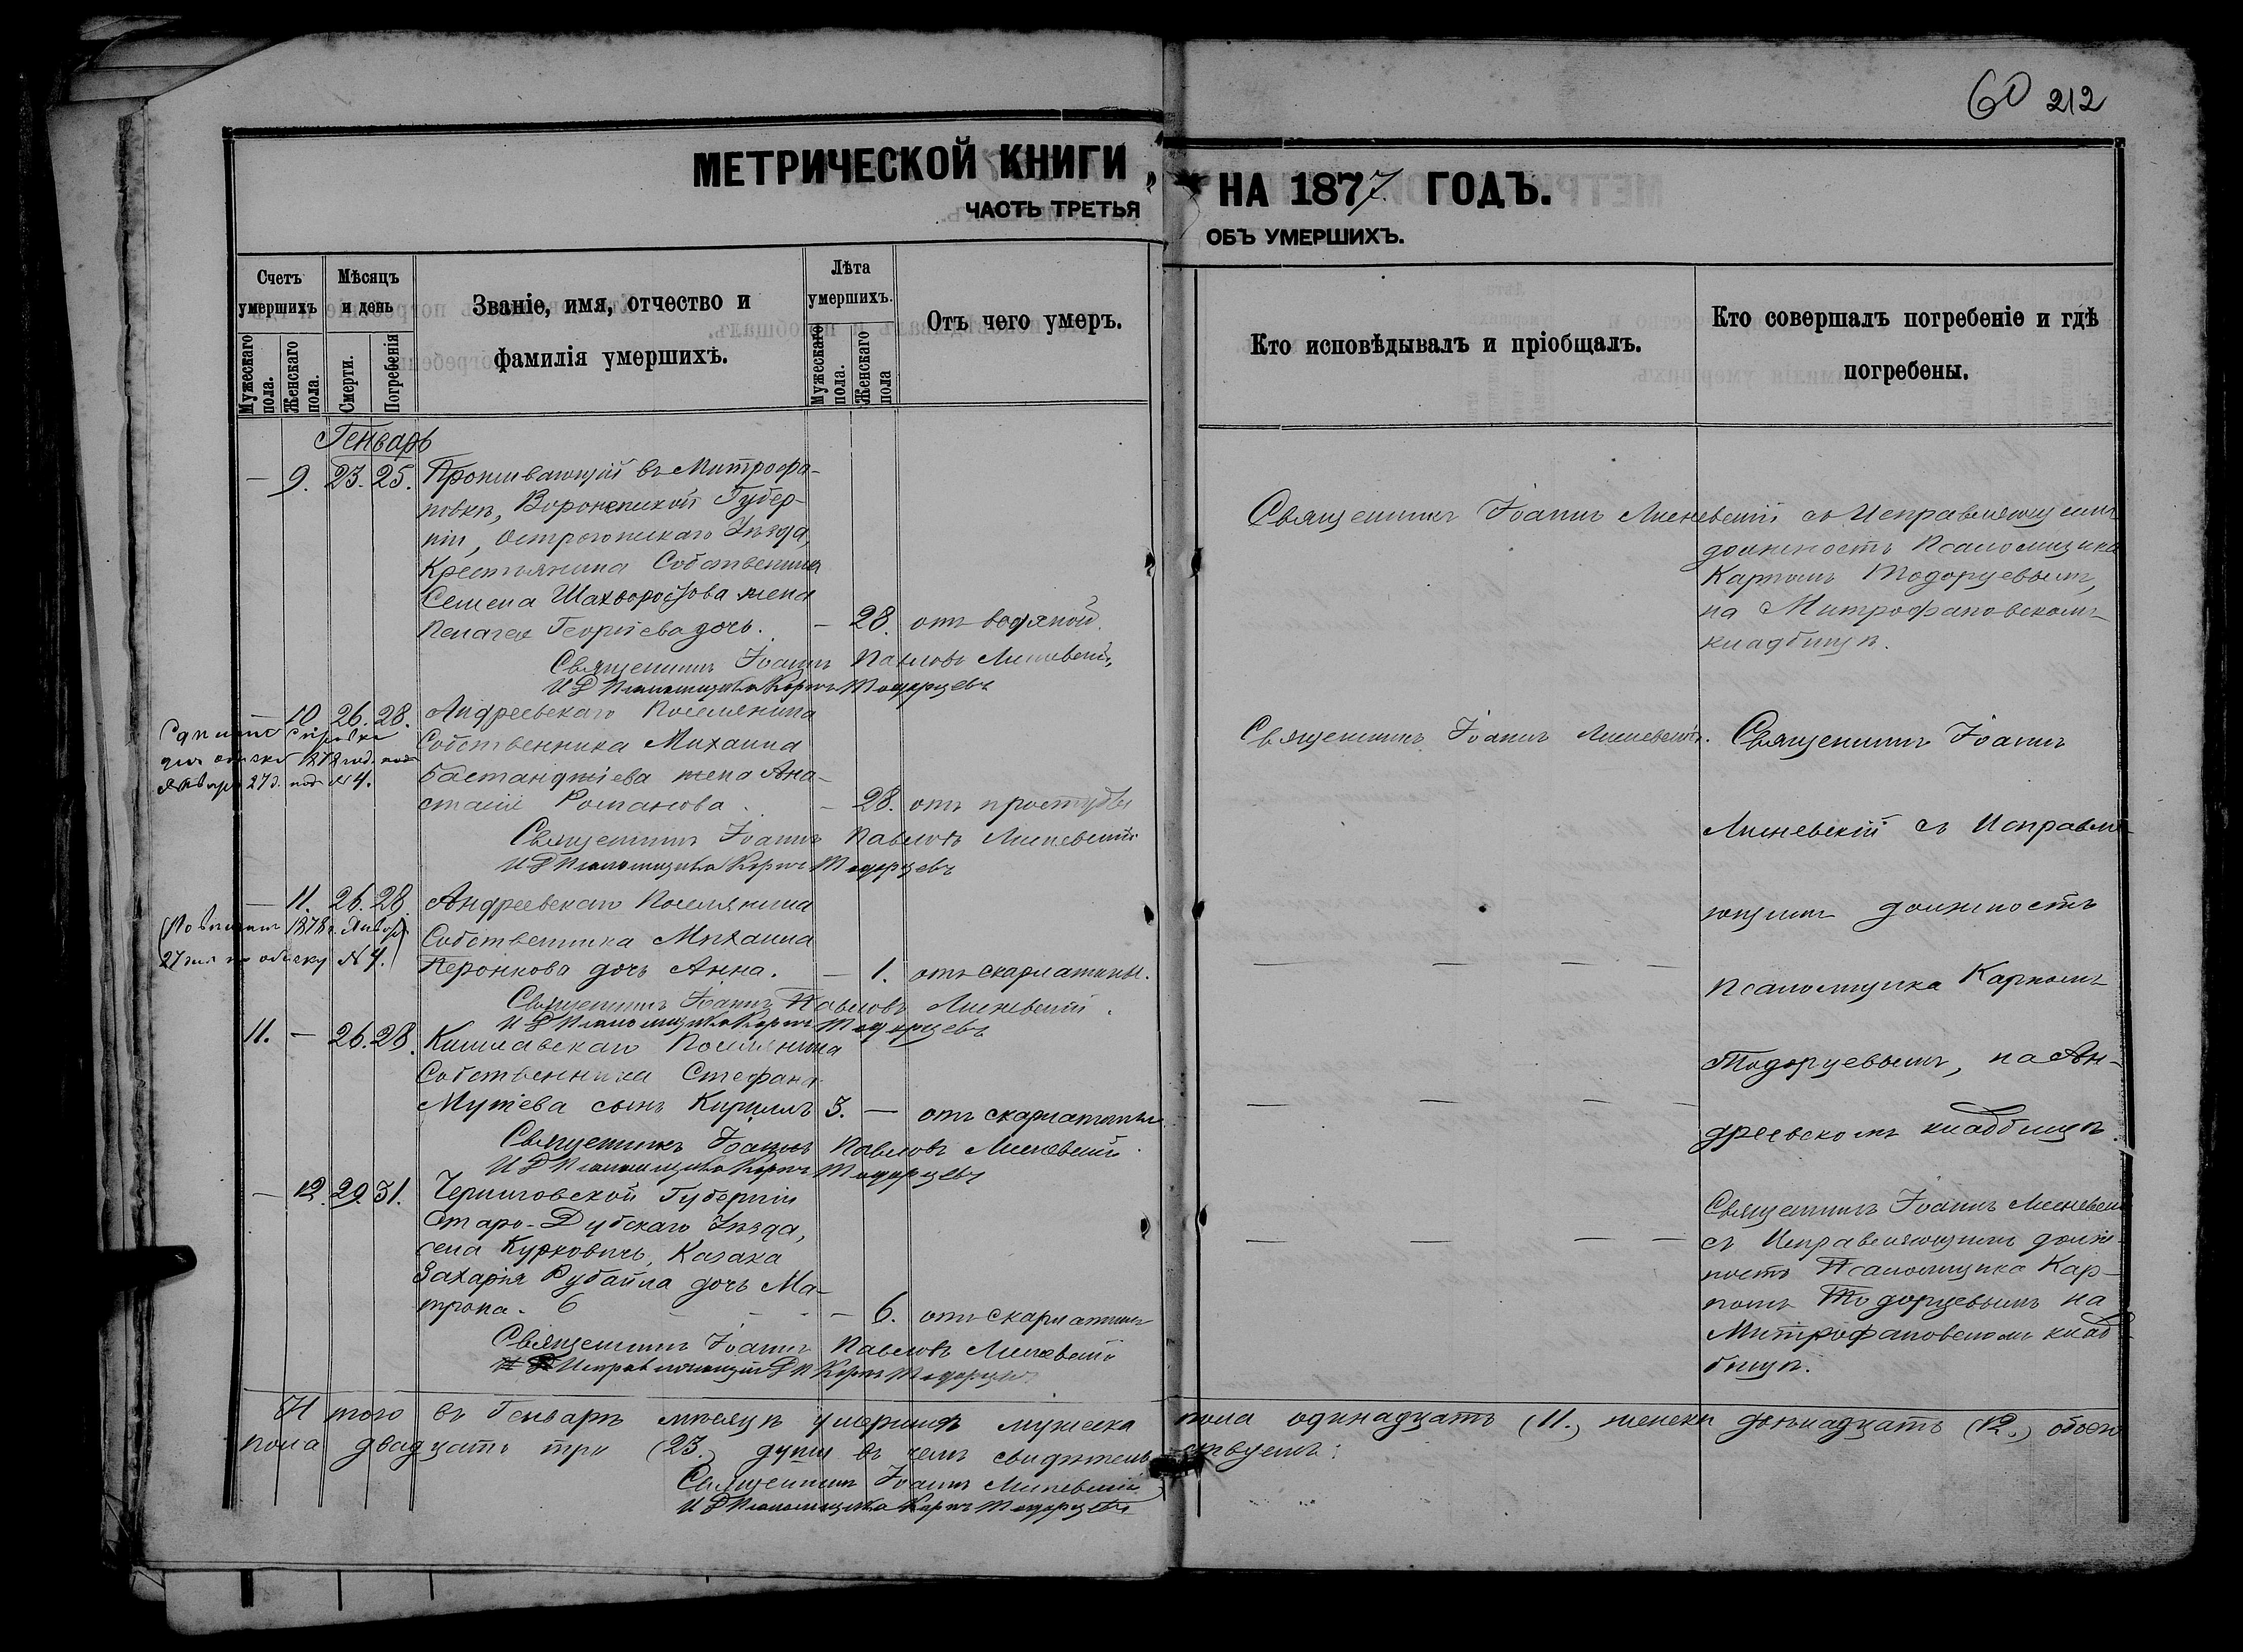 60 212
МЕТРИЧЕСКОЙ КНИГИ, НА 1877 ГОДЪ.
ЧАСТЬ ТРЕТЬЯ ОБЪ УМЕРШИХЪ.
Счетъ умершихъ
Мужескаго пола.
Женскаго пола.
Мѣсяцъ и день
Смерти.
Погребенія
Званіе, имя, отчество и
фамилія умершихъ.
Лѣта умершихъ.
Мужескаго пола.
Женскаго пола
Отъ чего умеръ.
Кто исповѣдывалъ и пріобщалъ.
Кто совершалъ погребеніе и гдѣ
погребены.
Генварь
— 9. 23. 25. Проживающій въ Митрофа-
новкѣ, Воронежской Губер-
ніи, Острогожскаго Уѣзда,
Крестьянина Собственника
Семена Шахворостова жена
Пелагея Георгіева дочь. — 28. отъ водяной.
Священникъ Іоаннъ Павловъ Лисневскій
И Д Псаломщика Карпъ Тодорцевъ
Священникъ Іоаннъ Лисневскій съ Исправляющимъ
должность Псаломщика
Карпомъ Тодорцевымъ,
на Митрофановскомъ
кладбищѣ.
— 10. 26. 28. Андреевскаго Поселянина
Собственника Михаила
Бастанджіева жена Ана-
стасія Романова. — 28. отъ простуды
Священникъ Іоаннъ Павловъ Лисневскій
И Д Псаломщика Карпъ Тодорцевъ
справка
1878 год.
27 д. под №4.
Священникъ Іоаннъ Лисневскій.
— 11. 26. 28. Андреевскаго Поселянина
Собственника Михаила
Перонкова дочь Анна. — 1. отъ скарлатины.
Священникъ Іоаннъ Павловъ Лисневскій.
И Д Псаломщика Карпъ Тодорцевъ
1878 г. Января
27 дня по обыску №4.
11. — 26. 28. Кишлавскаго Поселянина
Собственника Стефана
Мутева сынъ Кириллъ 3. — отъ скарлатины
Священникъ Іоаннъ Павловъ Лисневскій
И Д Псаломщика Карпъ Тодорцевъ
Священникъ Іоаннъ
Лисневскій съ Исправля-
ющимъ должность
Псаломщика Карпомъ
Тодорцевымъ, на Ан-
дреевскомъ кладбищѣ.
— 12. 29. 31. Черниговской Губерніи
Старо-Дубскаго Уѣзда,
села Курковичъ, Казака
Захарія Рубайла дочь Ма-
трона. 6 — 6. отъ скарлатины
Священникъ Іоаннъ Павловъ Лисневскій
Исправляющій Д П Карпъ Тодорцевъ
Священникъ Іоаннъ Лисневскій
съ Исправляющимъ долж-
ность Псаломщика Кар-
помъ Тодорцевымъ на
Митрофановскомъ клад-
бищѣ.
Итого въ Генварѣ мѣсяцѣ умершихъ мужеска пола одинадцать (11.) женска двѣнадцать (12.) обоего
пола двадцать три (23.) души въ чемъ свидѣтельствуемъ:
Священникъ Іоаннъ Лисневскій
И Д Псаломщика Карпъ Тодорцевъ